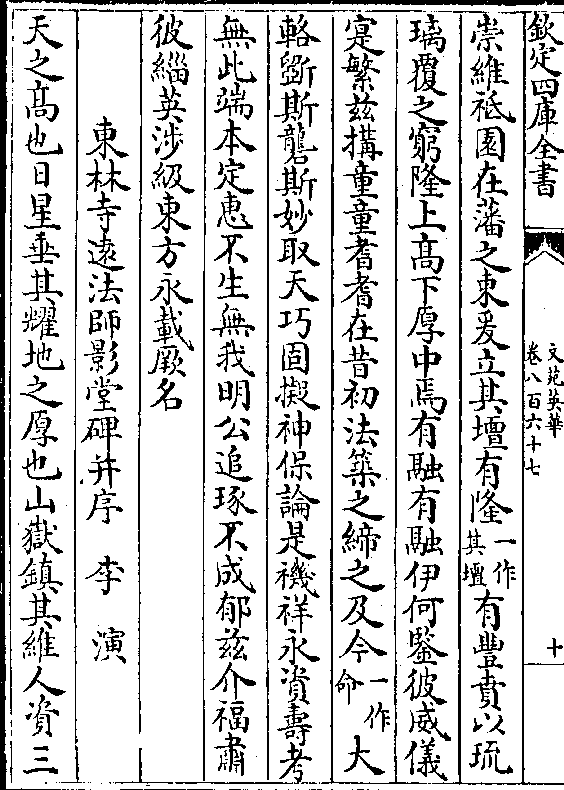 欽定四庫全書
文苑英華
卷八百六十七
十
崇維祗園在藩之東爰立其壇有隆一作其壇有豐賁以琉
璃覆之窮隆上髙下厚中焉有融有融伊何鑒彼威儀
寔繁兹搆童童耆耆在昔初法築之締之及今一作命大
輅斵斯礲斯妙取天巧固擬神保論是禨祥永資夀考
無此端本定惠不生無我明公追琢不成郁兹介福肅
彼緇英涉級東方永載厥名
東林寺逺法師影堂碑并序 李演
天之髙也日星垂其耀地之厚也山嶽鎮其維人資三